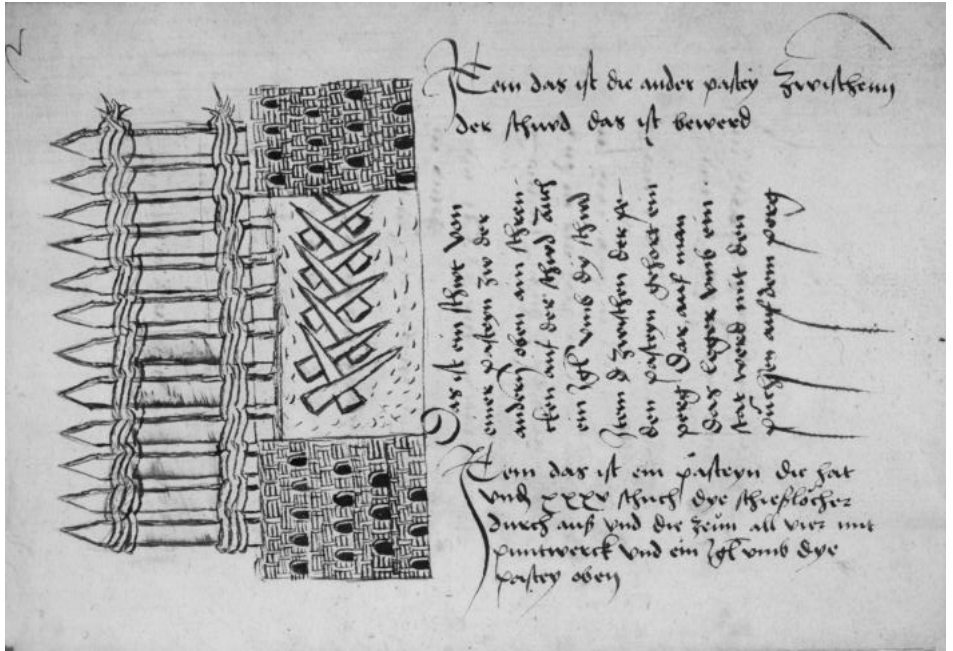 Item das ist die ander pastey zwischenn
der schwd das ist bewerd
Das ist ein schut von
einer pasteyn zw der
andern oben ain schren
cken auf der schud auch
ein Igl vmb dy schud
Item zwischen der
den pasteyn gehort ein
perg dar auf man
das leger vmb ein
star werd mit den
puchsen auf dem perg
Item das ist ein pasteyn die hat
vnd xxxv schuch dye schießlöcher
durch auß vnd die zeün all vier mit
puntwerck vnd ein Igl vmb dye
pastey oben